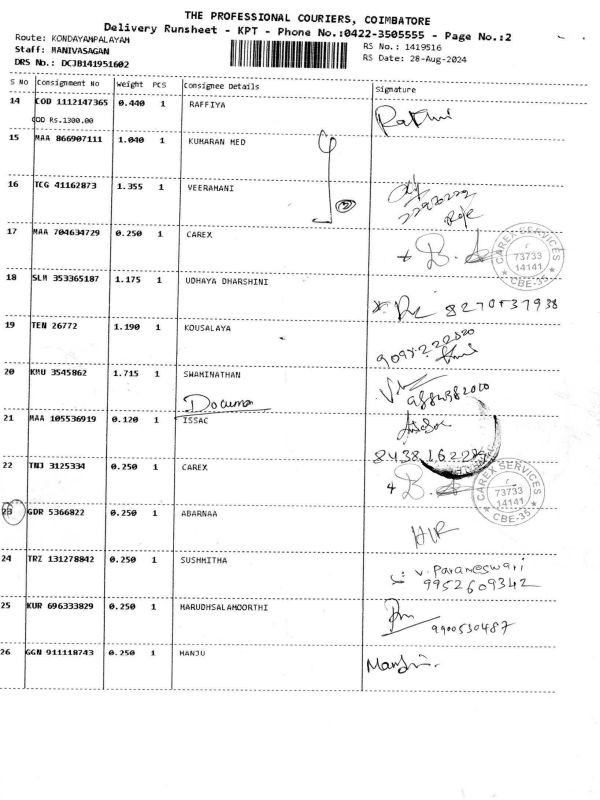 THE PROFESSIONAL COURIERS, COIMBATORE
Delivery Runsheet - KPT - Phone No.:0422-3505555 - Page No.:2
Route: KONDAYAMPALAYAM
Staff: MANIVASAGAN
RS No. : 1419516
DRS No.: DCJB141951602
RS Date: 28-Aug-2024
S No Consignment No Weight PCS Consignee Details Signature
14 COD 1112147365 0.440 1 RAFFIYA
COD Rs.1300.00
15 MAA 866907111 1.040 1 KUMARAN MED
16 TCG 41162873 1.355 1 VEERAMANI
17 MAA 704634729 0.250 1 CAREX
CAREX SERVICES 73733 14141 * CBE-35 *
18 SLM 353365187 1.175 1 UDHAYA DHARSHINI
8270537938
19 TEN 26772 1.190 1 KOUSALAYA
20 KMU 3545862 1.715 1 SWAMINATHAN
Documen
21 MAA 105536919 0.120 1 ISSAC
22 TNJ 3125334 0.250 1 CAREX
CAREX SERVICES 73733 14141 * CBE-35 *
23 GDR 5366822 0.250 1 ABARNAA
24 TRZ 131278842 0.250 1 SUSHMITHA
V. Parameswari
9952609342
25 KUR 696333829 0.250 1 MARUDHSALAMOORTHI
9900530487
26 GGN 911118743 0.250 1 MANJU